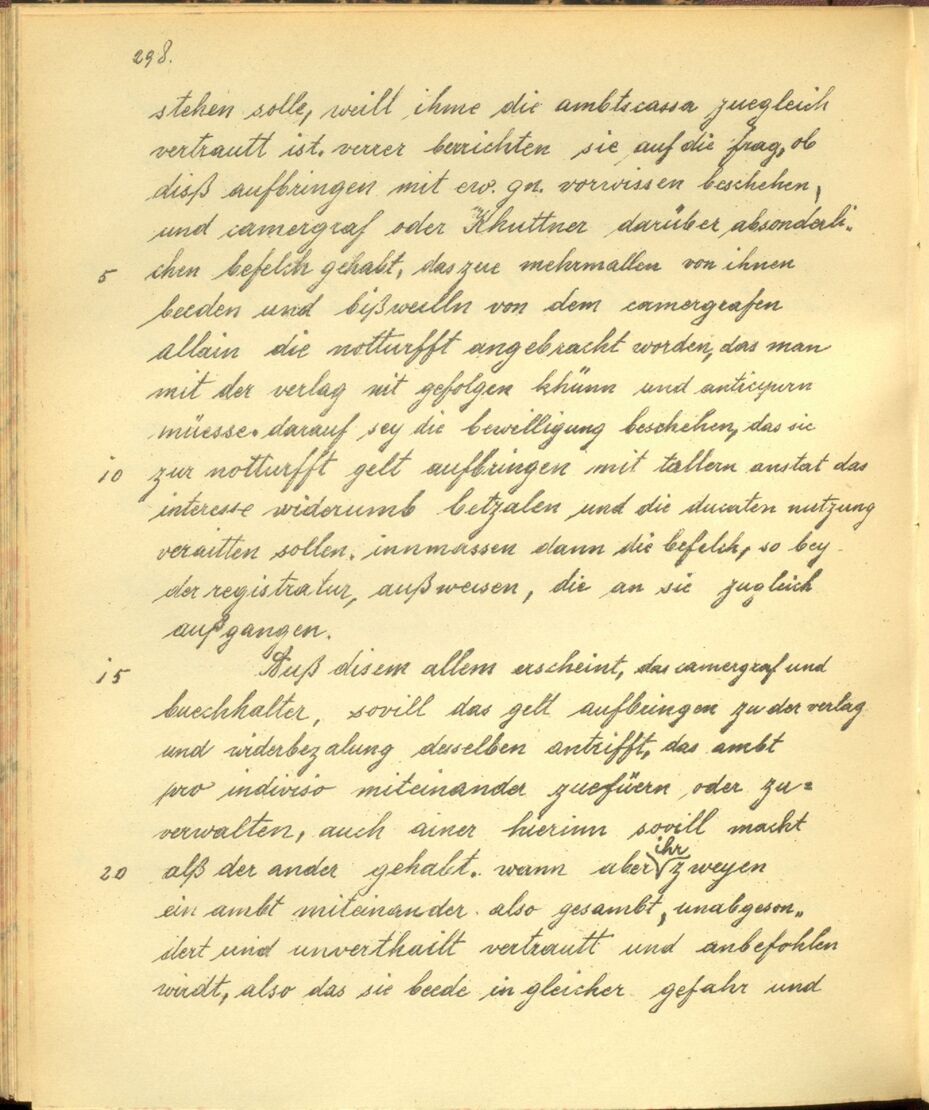 298.
stehen solle, weill ihme die ambtscassa zuegleich
vertrautt ist. verrer berichten sie auf die frag, ob
disß aufbringen mit ew. gn. vorwissen beschehen,
und camergraf oder Khuttner darüber absonderli„
5 chen befelch gehabt, das zue mehrmallen von ihnen
beeden und bißweilln von dem camergrafen
allain die notturfft angebracht worden, das man
mit der verlag nit gefolgen khünn und anticipirn
müesse. darauf sey die bewilligung beschehen, das sie
10 zur notturfft gelt aufbringen mit tallern anstat das
interesse widerumb betzalen und die ducaten nutzung
verraitten sollen. innmassen dann die befelch, so bey
der registratur, außweisen, die an sie zugleich
außgangen.
15 Auß disem allem erscheint, das camergraf und
buechhalter, sovill das gelt aufbringen zu der verlag
und widerbezalung desselben antrifft, das ambt
pro indiviso miteinander zuefüern oder zu=
verwalten, auch ainer hierinn sovill macht
20 alß der ander gehabt. wann aber ihr zweyen
ein ambt miteinander also gesambt, unabgeson„
dert und unverthailt vertrautt und anbefohlen
wirdt, also das sie beede in gleicher gefahr und